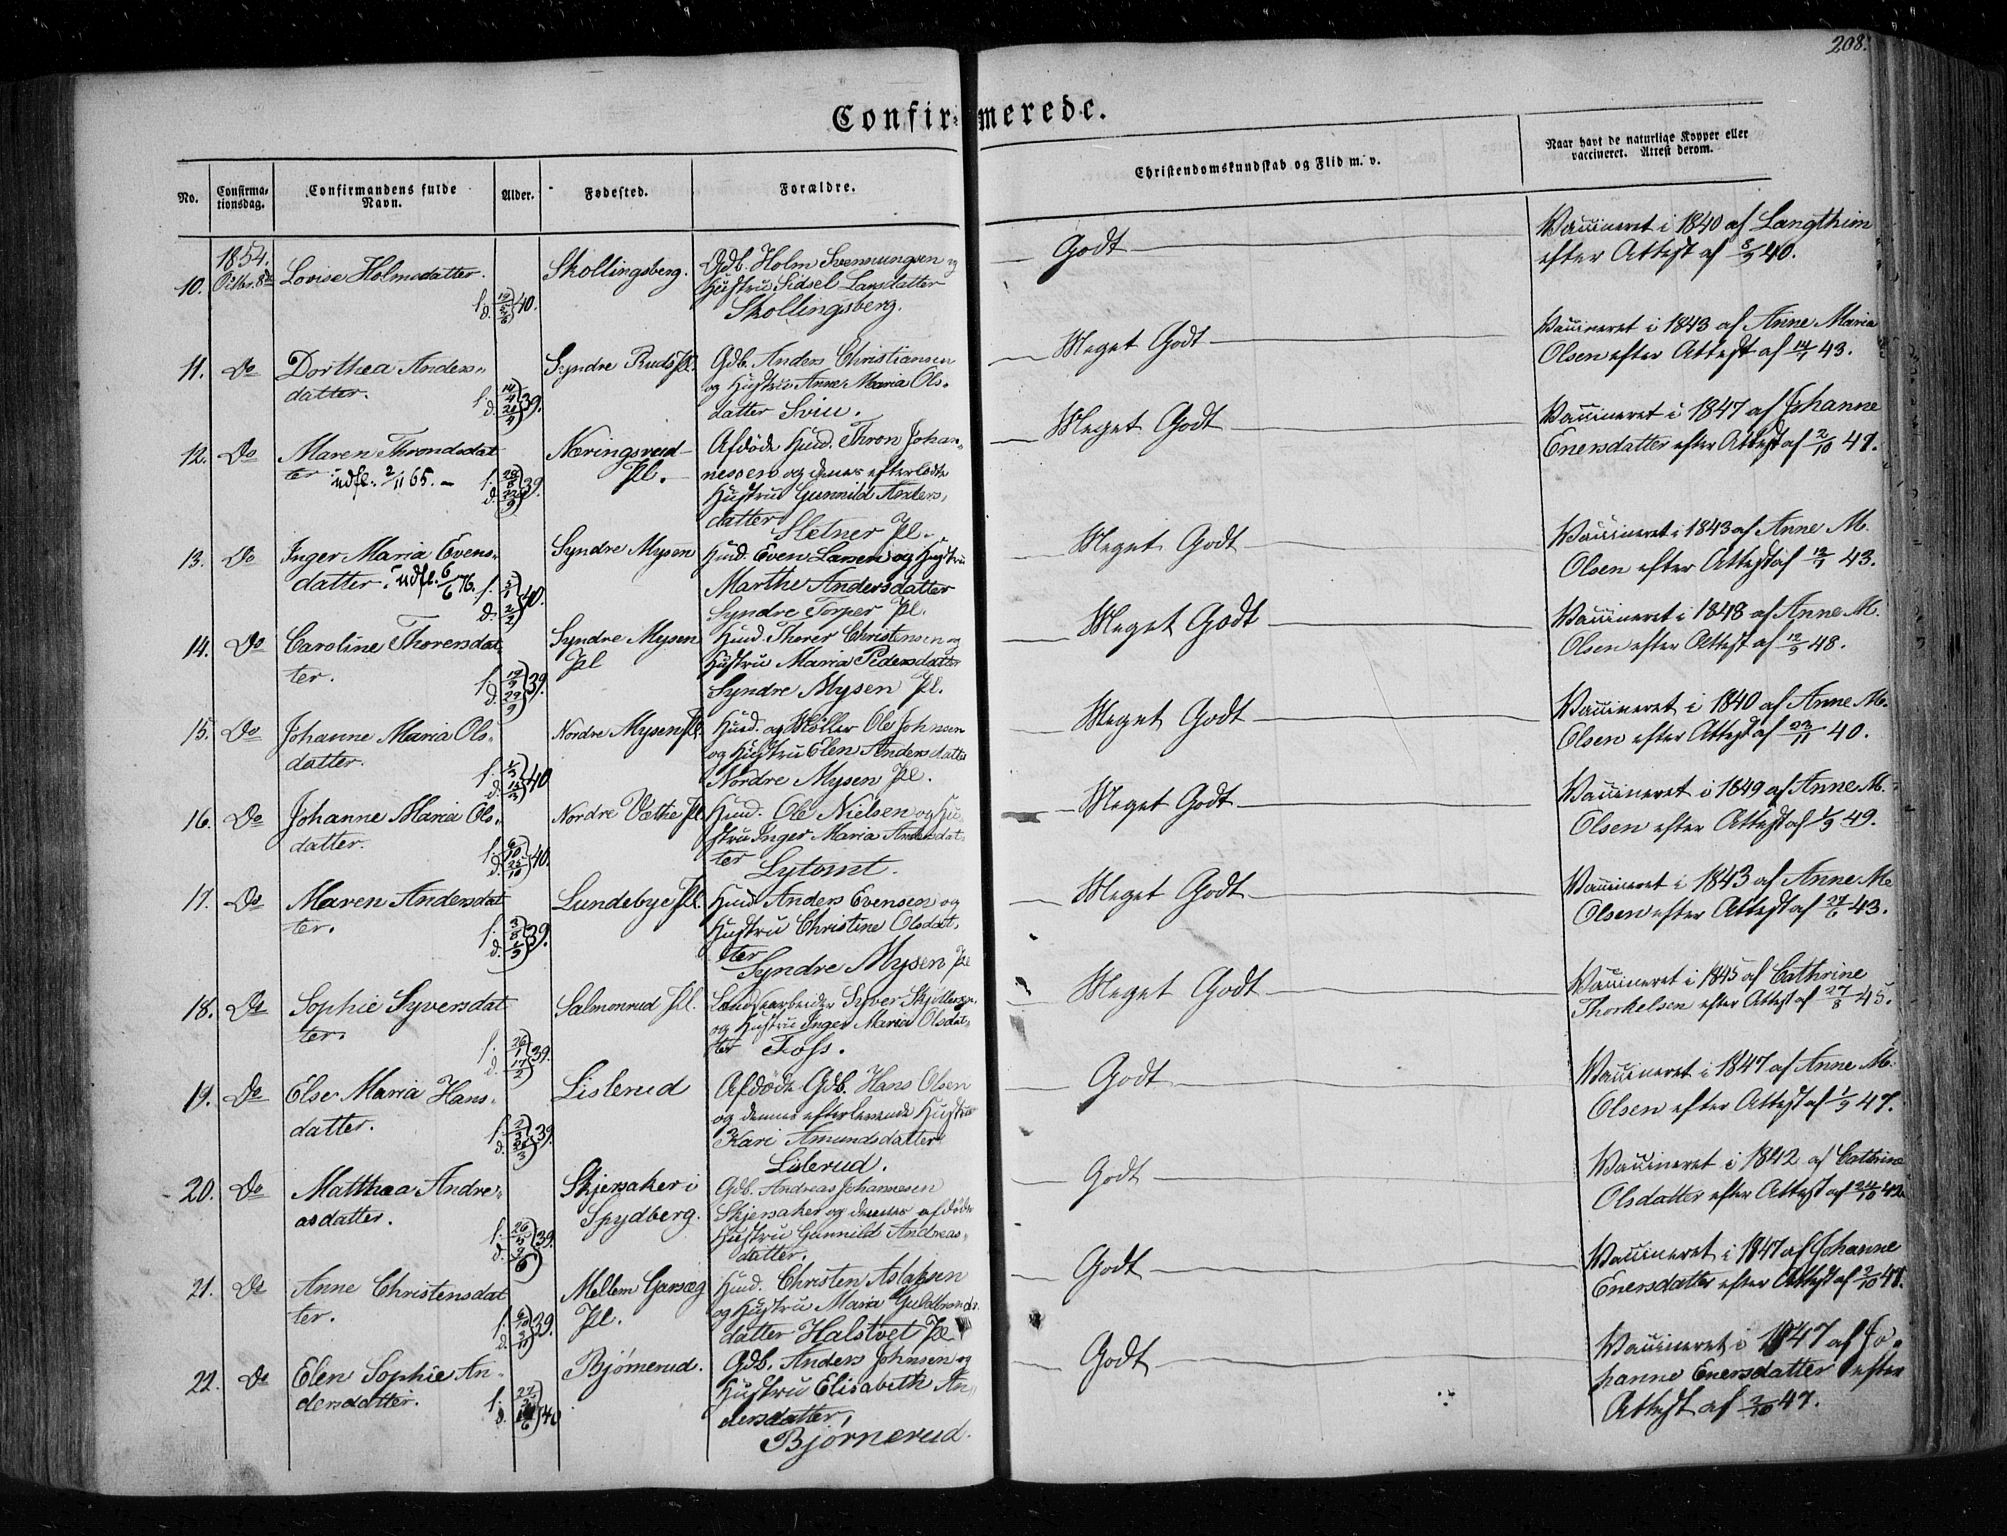 208.
Confirmerede.
No.
Confirma-
tionsdag.
Confirmandens fulde
Navn.
Alder.
Fødested.
Forældre.
Christendomskundskab og Flid m. v.
Naar havt de naturlige Kopper eller
vaccineret. Attest derom.
1854.
10. Octbr. 8de Lovise Holmsdatter. Skollingsberg. Gdb. Holm Svennungsen og
f. d. 40. Hustru Sidsel Larsdatter
Skollingsberg.
Godt
Vaccineret i 1840 af Langthim
efter Attest af 8/9 40.
11. Do Dorthea Anders- Syndre Ruds Pl. Gdb. Anders Christiansen
datter. f. 14/4 d. 21/4 39. og Hustru Anne Maria Ols-
datter Sviu.
Meget Godt
Vaccineret i 1843 af Anne Maria
Olsen efter Attest af 14/7 43.
12. Do Maren Throndsdat Næringsrud Afdøde Husd. Thron Johan-
ter udfl. 2/11 65. f. d. 39. Pl. nessen og dennes efterladte
Hustru Gunnild Anders-
datter Sletner Pl.
Meget Godt
Vaccineret i 1847 af Johanne
Enersdatter efter Attest af 2/10 47.
13. Do Inger Maria Evens- Syndre Mysen Husd. Even Larsen og Hustru
datter. udfl. 6/6 76. f. 5/1 d. 2/2 40. Marthe Andersdatter
Syndre Torper Pl.
Meget Godt
Vaccineret i 1843 af Anne M.
Olsen efter Attest af 12/7 43.
14. Do Caroline Thorersdat Syndre Mysen Husd. Thorer Christensen og
ter. f. d. 39. Pl Hustru Maria Pedersdatter
Syndre Mysen Pl.
Meget Godt
Vaccineret i 1848 af Anne M.
Olsen efter Attest af 12/9 48.
15. Do Johanne Maria Ols- Nordre Mysen Pl. Husd. og Møller Ole Johnsen
datter. f. d. 40 og Hustru Elen Andersdatter
Nordre Mysen Pl.
Meget Godt
Vaccineret i 1840 af Anne M.
Olsen efter Attest af 23/11 40.
16. Do Johanne Maria Ols- Nordre Væthe Pl. Husd. Ole Nielsen og Hu-
datter. f. 6/10 d. 25/10 40. stru Inger Maria
ter Lytomt.
Meget Godt
Vaccineret i 1849 af Anne M.
Olsen efter Attest af 1/9 49.
17. Do Maren Andersdat Lundebye Pl. Husd. Anders Evensen og
ter. f. 3/8 d. 1/9 39. Hustru Christine Olsdat-
ter Syndre Mysen Pl
Meget Godt
Vaccineret i 1843 af Anne M.
Olsen efter Attest af 27/6 43.
18. Do Sophie Syversdat Salmonrud Pl. Syver
ter. f. 26/1 d. 17/2 39. og Hustru Inger Maria Olsdat-
ter Foss.
Meget Godt
Vaccineret i 1845 af Cathrine
Thorkelsen efter Attest af 27/8 45.
19. Do Else Maria Hans- Lislerud Afdøde Gdb. Hans Olsen
datter. f. 2/3 d. 39. og dennes efterlevende Hustru
Kari Amundsdatter
Lislerud.
Godt
Vaccineret i 1847 af Anne M.
Olsen efter Attest af 1/9 47.
20. Do Matthea Andre- Skjersaker i Gdb. Andreas Johannesen
asdatter. f. d. 39. Spydberg. Skjersaker og dennes afdøde
Hustru Gunnild Andreas-
datter.
Godt
Vaccineret i 1842 af Cathrine
Olsdatter efter Attest af 24/10 42.
21. Do Anne Christensdat Mellem Garsæg Husd. Christen Aslaksen
ter. f. d. 39. Pl. og Hustru Maria Guldbrands-
datter Halstvet Pl
Godt
Vaccineret i 1847 af Johanne
Enersdatter efter Attest af 2/10 47.
22. Do Elen Sophie An- Bjørnerud. Gdb. Anders Johnsen og
dersdatter. f. d. 40 Hustru Elisabeth An-
dersdatter,
Bjørnerud.
Godt
Vaccineret i 1847 af Jo-
hanne Enersdatter efter
Attest af 2/10 47.